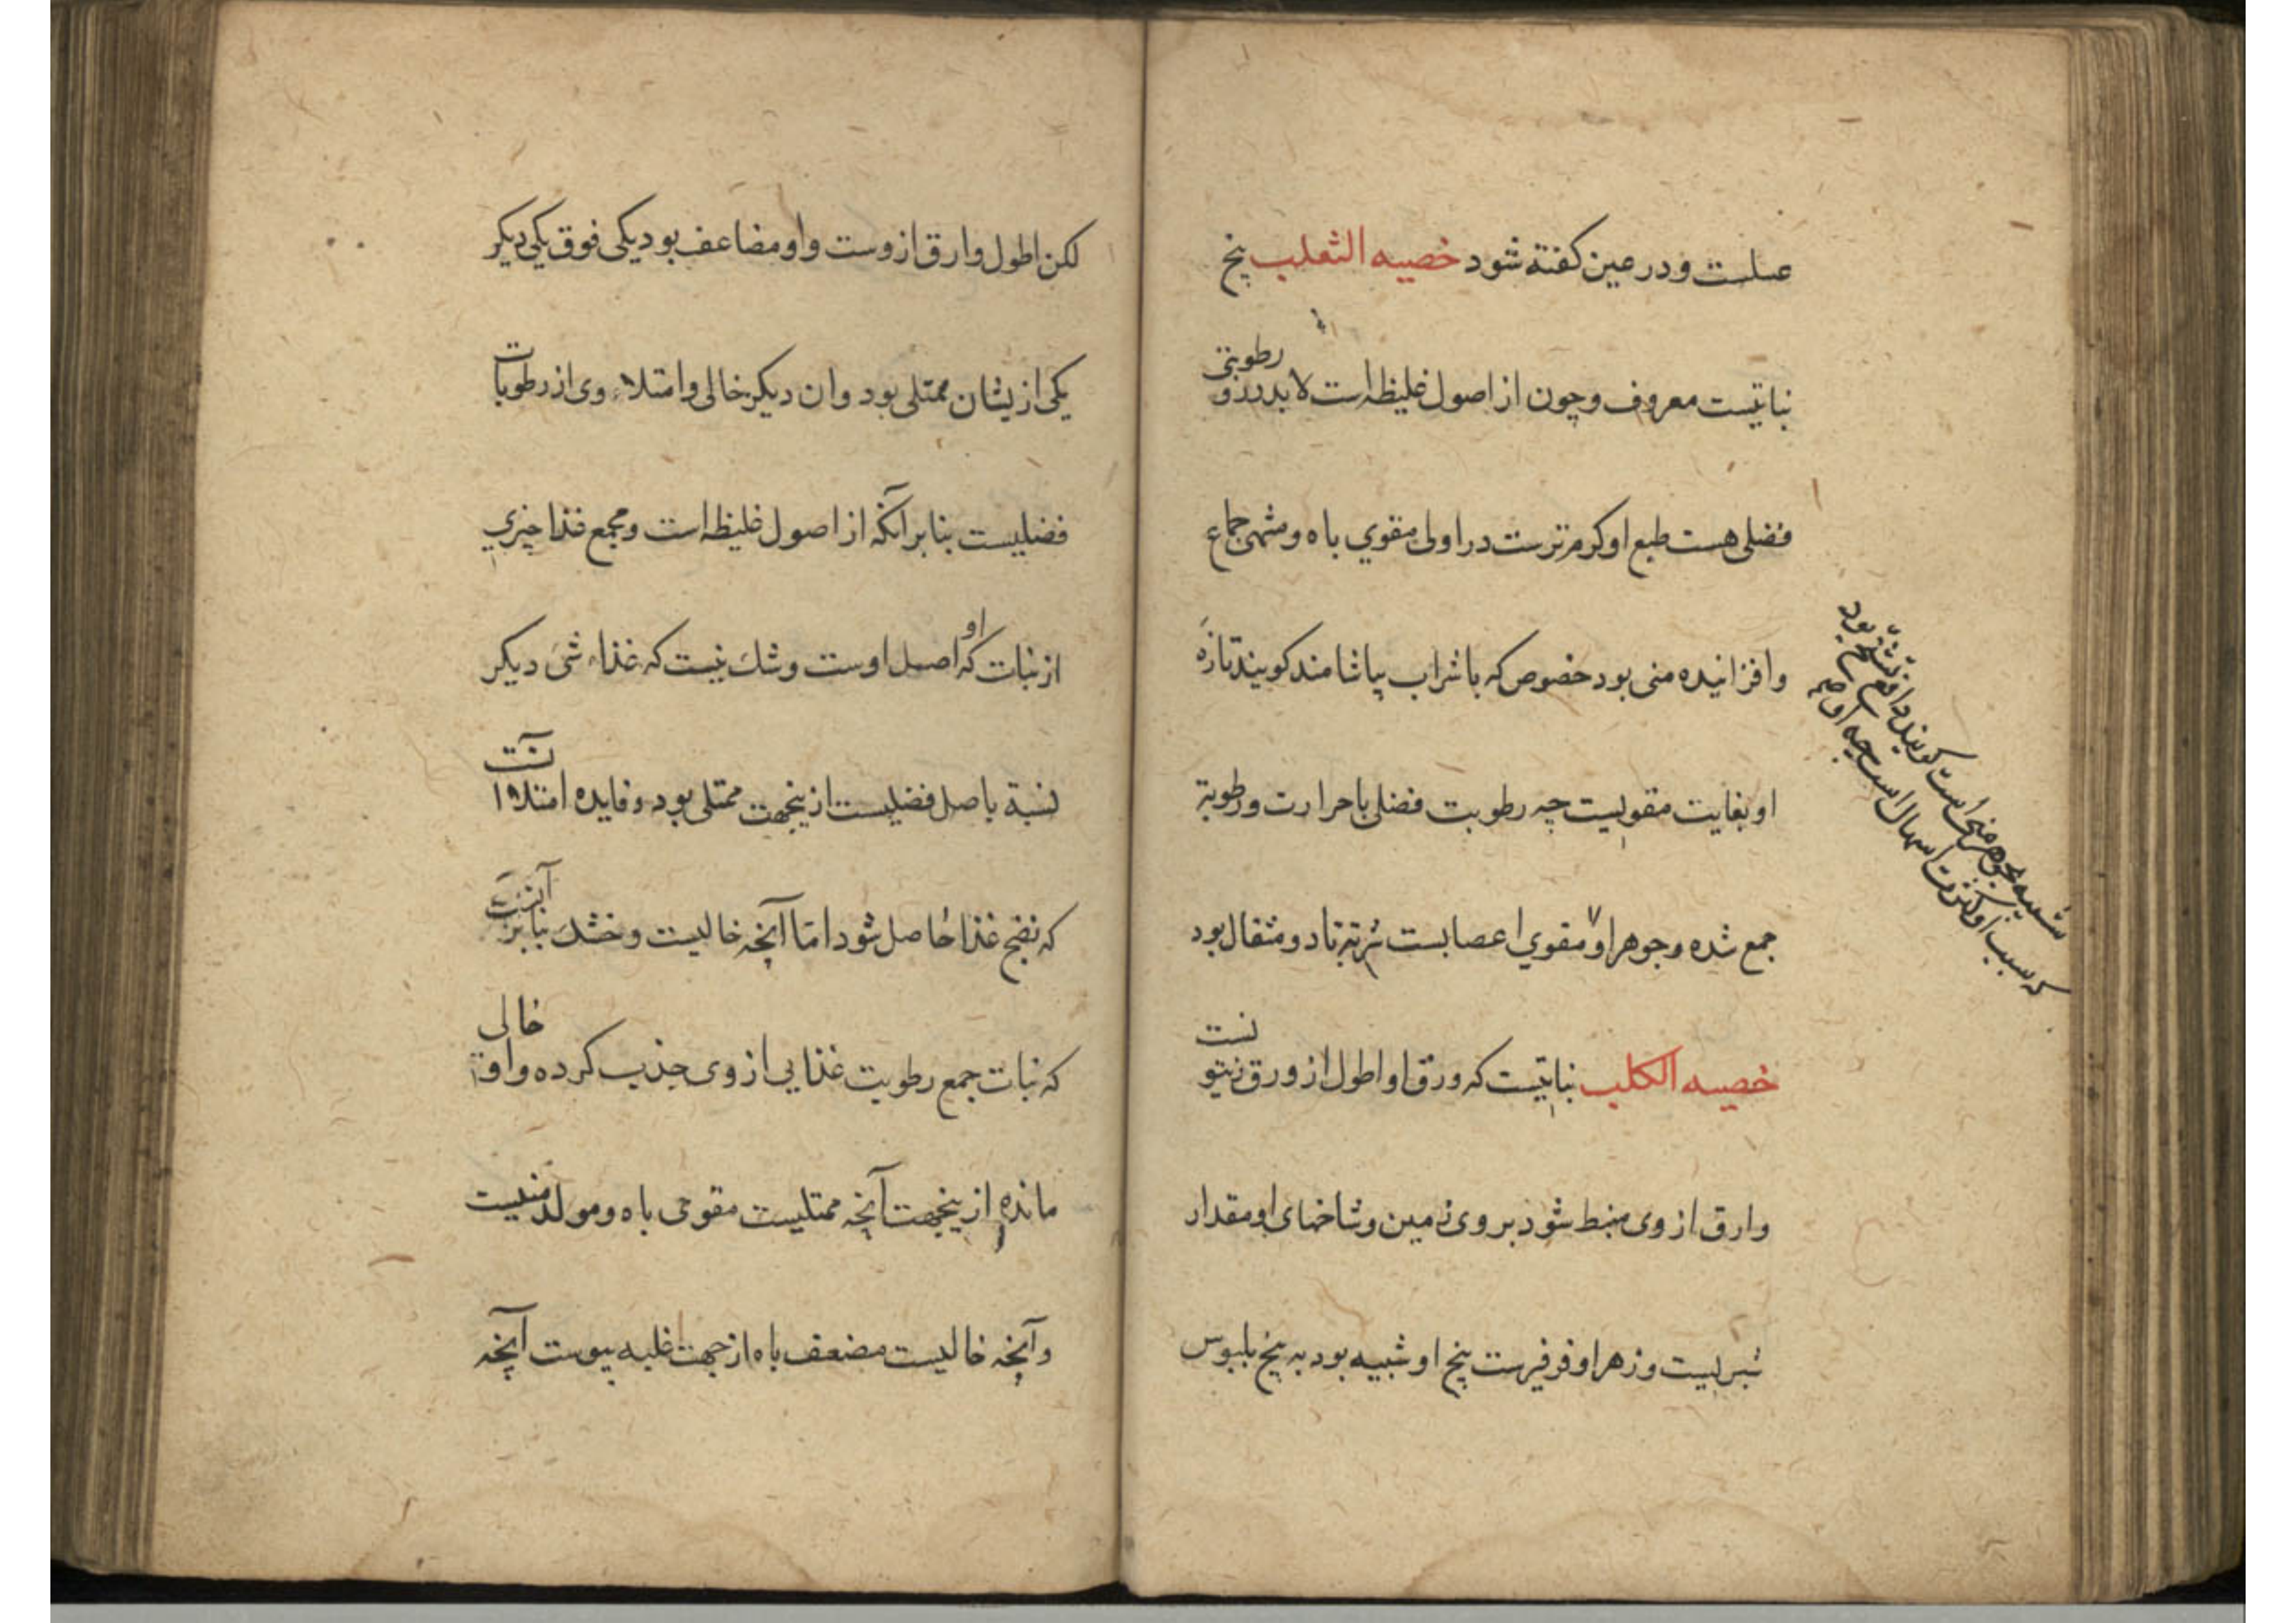 عسلست و در عین کفته شود خصیه الثعلب بیخ
نباتیست معروف و چون از اصول غلیظه است لابد درو رطوبتی
فضلی هست طبع او کرم ترست در اولی مقوی باه و مشهی جماع
و افزاینده منی بود خصوص که با شراب بیاشامند کویند تازه
او بغایت مقویست چه رطوبت فضلی با حرارت و رطوبة
جمع شده و جوهر او مقوی اعصابست شربته تا دو مثقال بود
خصیه الکلب نباتیست که ورق او اطول از ورق زیتونست
وارق از وی منبسط شود بر وی زمین و شاخهای او مقدار
شبریست و زهر او فرفیرست بیخ او شبیه بود به بیخ بلبوس
شبیه بجوهر منی است کویند دافع تشنج بود
که سبب او کثرت اسهال است چه او
لکن اطول وارق ازوست و او مضاعف بود یکی فوق یکی دیکر
یکی ازیشان ممتلی بود وان دیکر خالی وامتلاء وی از رطوبات
فضلیست بنابر آنکه از اصول غلیظه است و مجمع غذا چیزی
از نبات که او اصل اوست و شک نیست که غذاء شی دیکر
نسبة باصل فضلیست ازینجهت ممتلی بود و فایده امتلا آنست
که نضج غذا حاصل شود امّا آنچه خالیست و خشک بنابر آنست
که نبات جمع رطوبت غذایی از وی جذب کرده و او خالی
مانده ازینجهت آنچه ممتلیست مقوی باه و مولد منیست
و آنچه خالیست مضعف باه از جهت غلبه یبوست آنچه